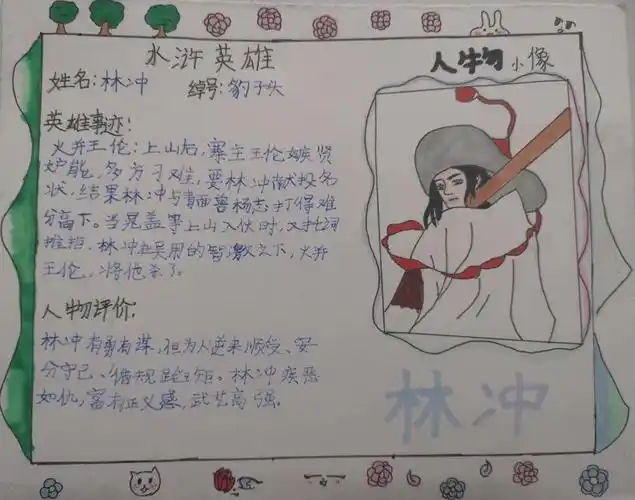 水浒英雄
人物小像
姓名:林冲 绰号:豹子头
英雄事迹:
火并王伦:上山后,寨主王伦嫉贤
妒能,多方刁难,要林冲献投名
状,结果林冲与青面兽杨志打得难
分高下。当晁盖等上山入伙时,又托词
推拒,林冲在吴用的智激之下,火并
王伦,将他杀了。
人物评价:
林冲有勇有谋,但为人逆来顺受、安
分守己、循规蹈矩。林冲疾恶
如仇,富有正义感,武艺高强.
林冲